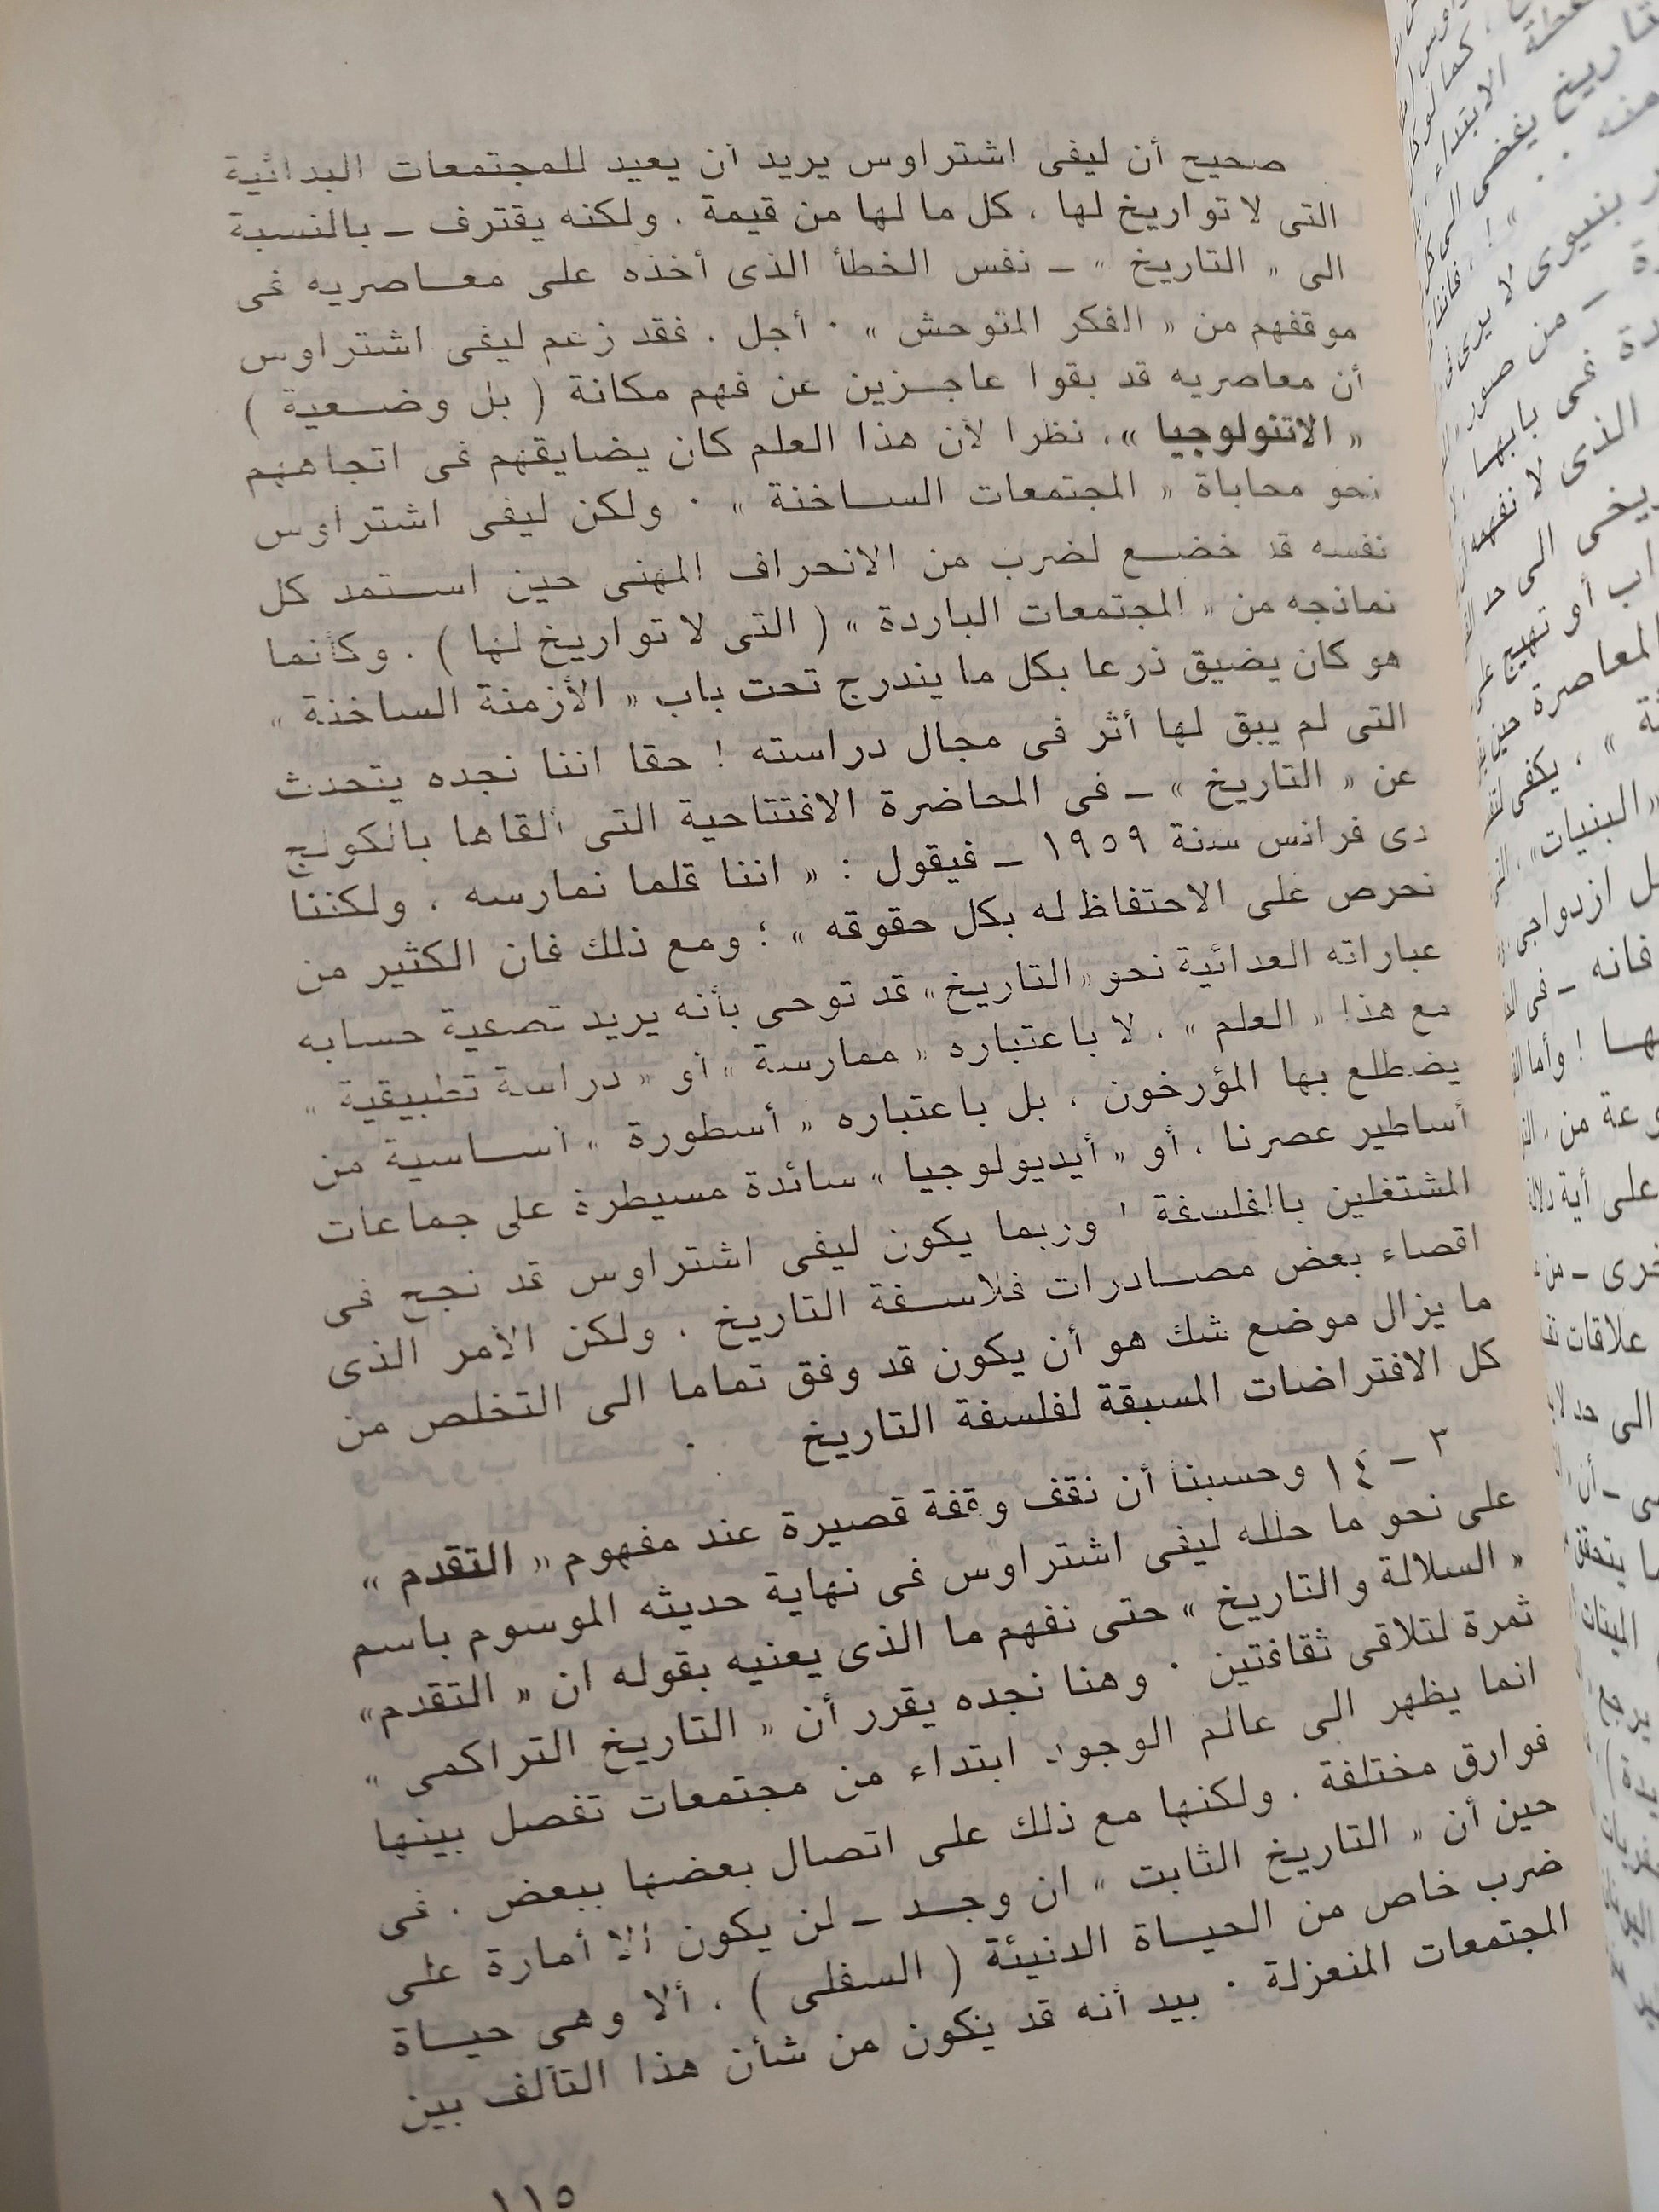 صحيح أن ليفى اشتراوس يريد أن يعيد للمجتمعات البدائية
التى لا تواريخ لها ، كل ما لها من قيمة . ولكنه يقترف ــ بالنسبة
الى « التاريخ » ــ نفس الخطأ الذى أخذه على معاصريه فى
موقفهم من « الفكر المتوحش » ٠ أجل . فقد زعم ليفى اشتراوس
أن معاصريه قد بقوا عاجزين عن فهم مكانة ( بل وضعية )
« الاتنولوجيا » ، نظرا لأن هذا العلم كان يضايقهم فى اتجاههم
نحو محاباة « المجتمعات الساخنة » ٠ ولكن ليفى اشتراوس
نفسه قد خضع لضرب من الانحراف المهنى حين استمد كل
نماذجه من « المجتمعات الباردة » ( التى لا تواريخ لها ) . وكأنما
هو كان يضيق ذرعا بكل ما يندرج تحت باب « الأزمنة الساخنة »
التى لم يبق لها أثر فى مجال دراسته ! حقا اننا نجده يتحدث
عن « التاريخ » ــ فى المحاضرة الافتتاحية التى ألقاها بالكولج
دى فرانس سنة ١٩٥٩ ــ فيقول : « اننا قلما نمارسه ، ولكننا
نحرص على الاحتفاظ له بكل حقوقه » ؛ ومع ذلك فان الكثير من
عباراته العدائية نحو « التاريخ » قد توحى بأنه يريد تصفية حسابه
مع هذا « العلم » ، لا باعتباره « ممارسة » أو « دراسة تطبيقية »
يضطلع بها المؤرخون ، بل باعتباره « أسطورة » أساسية من
أساطير عصرنا ، أو « أيديولوجيا » سائدة مسيطرة على جماعات
المشتغلين بالفلسفة ! وربما يكون ليفى اشتراوس قد نجح فى
اقصاء بعض مصادرات فلاسفة التاريخ . ولكن الأمر الذى
ما يزال موضع شك هو أن يكون قد وفق تماما الى التخلص من
كل الافتراضات المسبقة لفلسفة التاريخ ٠
٣ ــ ١٤ وحسبنا أن نقف وقفة قصيرة عند مفهوم « التقدم »
على نحو ما حلله ليفى اشتراوس فى نهاية حديثه الموسوم باسم
« السلالة والتاريخ » حتى نفهم ما الذى يعنيه بقوله ان « التقدم »
ثمرة لتلاقى ثقافتين ٠ وهنا نجده يقرر أن « التاريخ التراكمى »
انما يظهر الى عالم الوجود ابتداء من مجتمعات تفصل بينها
فوارق مختلفة . ولكنها مع ذلك على اتصال بعضها ببعض . فى
حين أن « التاريخ الثابت » ان وجد ــ لن يكون الا أمارة على
ضرب خاص من الحياة الدنيئة ( السفلى ) ، ألا وهى حياة
المجتمعات المنعزلة ٠ بيد أنه قد يكون من شأن هذا التآلف بين
١١٥